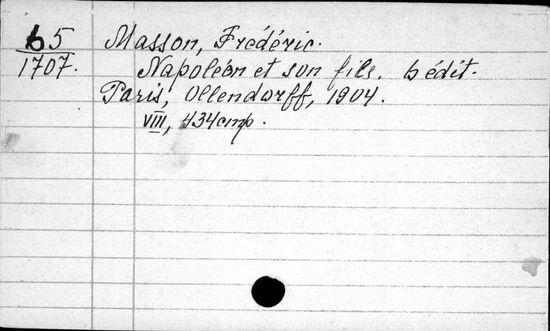 65
1707.
Masson, Frédéric.
Napoléon et son fils. 6 édit.
Paris, Ollendorff, 1904.
VIII, 434 cmp.